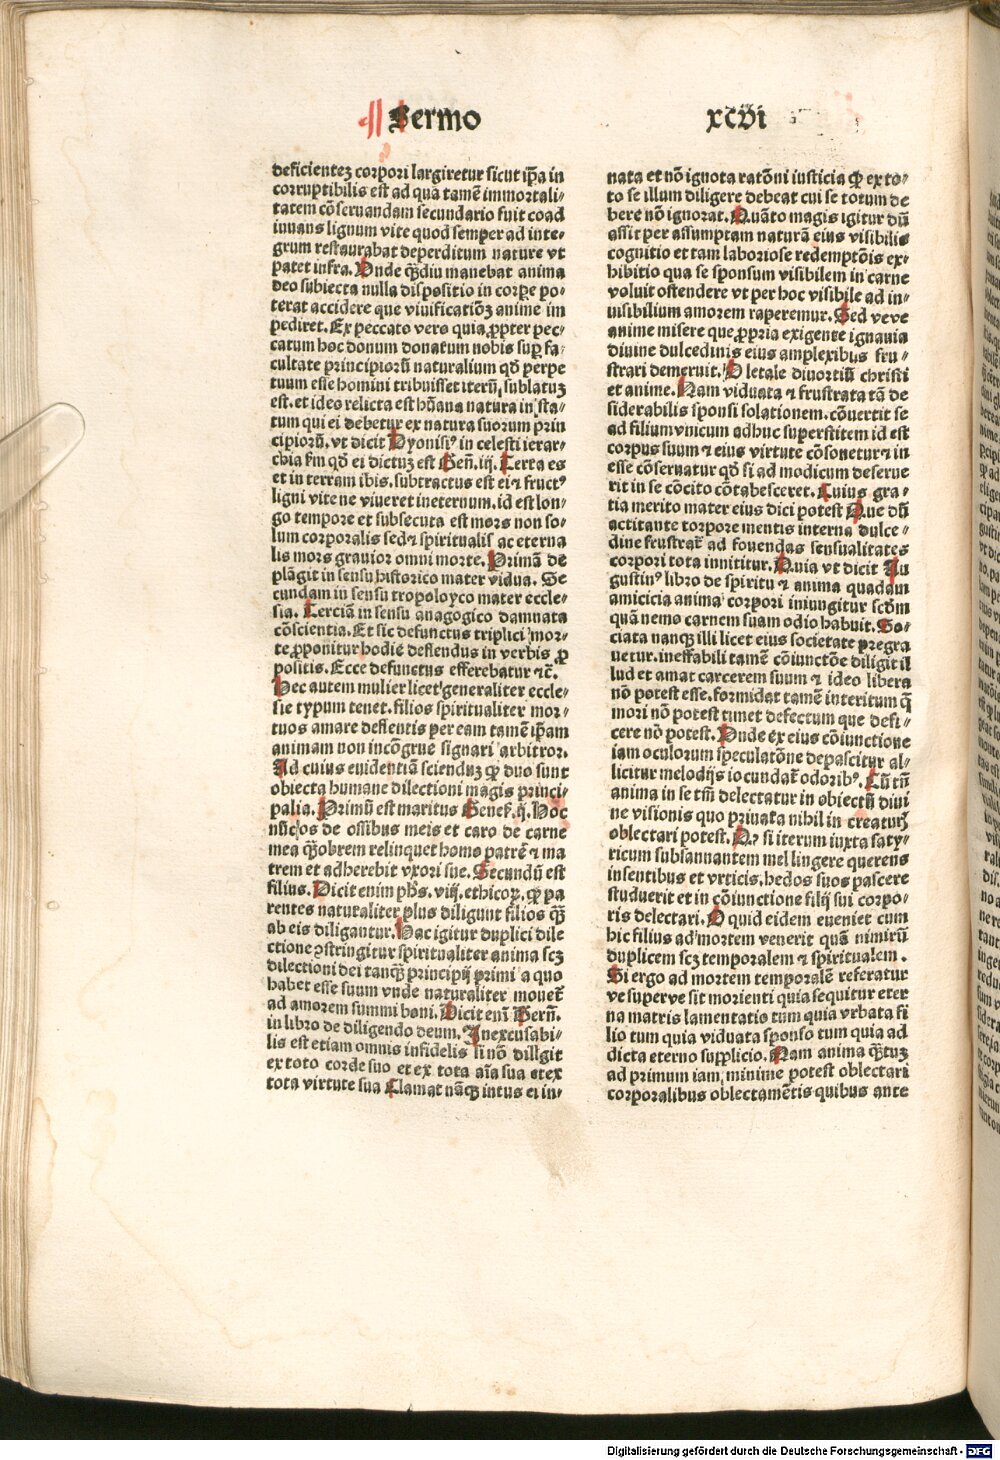 Sermo
xcvi
deficienteʒ corpori largiretur sicut ip̄a in
corruptibilis est ad quā tamē immortali⸗
tatem cōseruandam secundario fuit coad
iuuans lignum vite quod semper ad inte⸗
grum restaurabat deperditum nature vt
patet infra. Unde q̄ʒdiu manebat anima
deo subiecta nulla dispositio in corpe po⸗
terat accidere que viuificatiōʒ anime im
pediret. Ex peccato vero quia ꝓpter pec⸗
catum hoc donum donatum nobis sup̱ fa⸗
cultate principiorū naturalium qd̄ perpe
tuum esse homini tribuisset iterū, sublatuʒ
est. et ideo relicta est hūana natura in sta⸗
tum qui ei debetur ex natura suorum prin
cipiorū. vt dicit Dyonisiꝰ in celesti ierar⸗
chia ẜm qd̄ ei dictuʒ est Gen̄. iij. Terra es
et in terram ibis. subtractus est ei ⁊ fructꝰ
ligni vite ne viueret ineternum. id est lon⸗
go tempore et subsecuta est mors non so⸗
lum corporalis sed ⁊ spiritualis ac eterna
lis mors grauior omni morte. Primā de
plāgit in sensu historico mater vidua. Se
cundam in sensu tropoloyco mater eccle⸗
sia. Terciā in sensu anagogico damnata
cōscientia. Et sic defunctus triplici mor⸗
te ꝓponitur hodie deflendus in verbis ꝓ
positis. Ecce defunctus efferebatur ⁊c̄.
Hec autem mulier licet generaliter eccle⸗
sie typum tenet. filios spiritualiter mor⸗
tuos amare deflentis per eam tamē ip̄am
animam non incōgrue signari arbitror.
Ad cuius euidentiā sciendūʒ ꝙ duo sunt
obiecta humane dilectioni magis princi⸗
palia. Primū est maritus Genes̄. ij. Hoc
nūc os de ossibus meis et caro de carne
mea q̄ʒobrem relinquet homo patrē ⁊ ma
trem et adherebit vxori sue. Secundū est
filius. Dicit enim ph̄s. viij. ethicoꝝ. ꝙ pa
rentes naturaliter plus diligunt filios q̄ʒ
ab eis diligantur. Hac igitur duplici dile
ctione ꝯstringitur spiritualiter anima scʒ
dilectioni dei tanq̄ʒ principij primi a quo
habet esse suum vnde naturaliter mouet̄
ad amorem summi boni. Dicit eni Bern̄.
in libro de diligendo deum. Inexcusabi⸗
lis est etiam omnis infidelis si nō diligit
ex toto corde suo et ex tota aīa sua et ex
tota virtute sua Clamat nāqʒ intus ei in⸗
nata et nō ignota ratōni iusticia ꝙ ex to⸗
to se illum diligere debeat cui se totum de
bere nō ignorat. Quāto magis igitur dū
assit per assumptam naturā eius visibilis
cognitio et tam laboriose redemptōis ex⸗
hibitio qua se sponsum visibilem in carne
voluit ostendere vt per hoc visibile ad in⸗
uisibilium amorem raperemur. Sed veve
anime misere que ꝓpria exigente ignauia
diuine dulcedinis eius amplexibus fru⸗
strari demeruit. O letale diuortiū christi
et anime. Nam viduata ⁊ frustrata tā de
siderabilis sponsi solationem. cōuertit se
ad filium vnicum adhuc superstitem id est
corpus suum ⁊ eius virtute cōsonetur ⁊ in
esse cōseruatur qd̄ si ad modicum deserue
rit in se cōcito cōtabesceret. Cuius gra⸗
tia merito mater eius dici potest Que dū
actitante torpore mentis interna dulce⸗
dine frustrat̄ ad fouendas sensualitates
corpori tota innititur. Quia vt dicit Au
gustinꝰ libro de spiritu ⁊ anima quadam
amicicia anima corpori iniungitur scd̄m
quā nemo carnem suam odio habuit. So⸗
ciata nanqʒ illi licet eius societate pregra
uetur. ineffabili tamē cōiunctōe diligit il
lud et amat carcerem suum ⁊ ideo libera
nō potest esse. formidat tamē interitum q̄
mori nō potest timet defectum que defi⸗
cere nō potest. Unde ex eius cōiunctione
iam oculorum speculatōne depascitur al⸗
licitur melodijs iocundat̄ odoribꝰ. Cū tn̄
anima in se tm̄ delectatur in obiectū diui
ne visionis quo priuata nihil in creaturꝭ
oblectari potest. Qꝫ si iterum iuxta saty⸗
ricum subsannantem mel lingere querens
in sentibus et vrticis. hedos suos pascere
studuerit et in cōiunctione filij sui corpo⸗
ris delectari. O quid eidem eueniet cum
hic filius ad mortem venerit quā nimirū
duplicem scʒ temporalem ⁊ spiritualem.
Si ergo ad mortem temporalē referatur
ve superve sit morienti quia sequitur eter
na matris lamentatio tum quia vrbata fi
lio tum quia viduata sponso tum quia ad
dicta eterno supplicio. Nam anima q̄ʒtuʒ
ad primum iam minime potest oblectari
corporalibus oblectamētis quibus ante
Digitalisierung gefördert durch die Deutsche Forschungsgemeinschaft - DFG